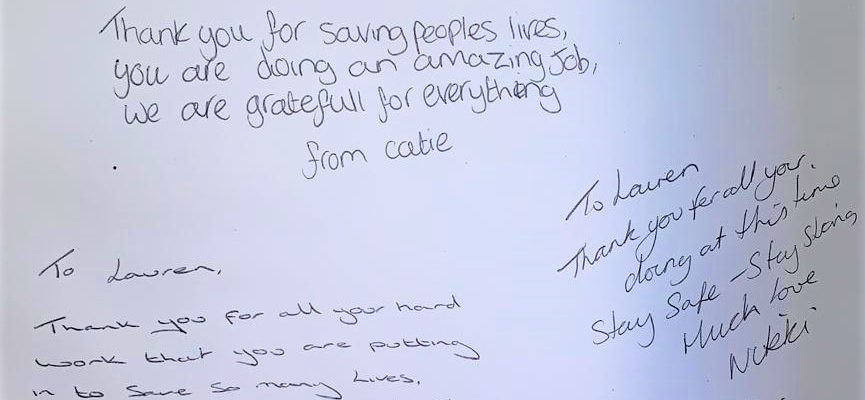 Thank you for saving peoples lives,
you are doing an amazing job,
we are gratefull for everything
from catie
To Lauren
Thank you for all your
doing at this time
Stay Safe - Stay Strong
Much love
Nikki
To Lauren,
Thank you for all your hard
work that you are putting
in to save so many lives.